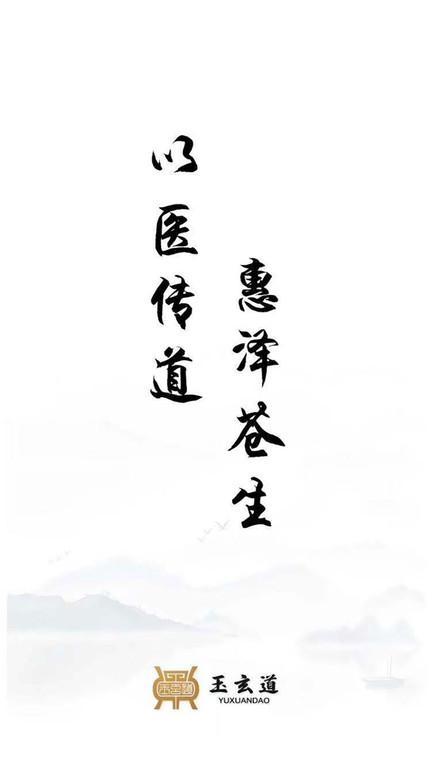 以医传道
惠泽苍生
玉玄道
YUXUANDAO